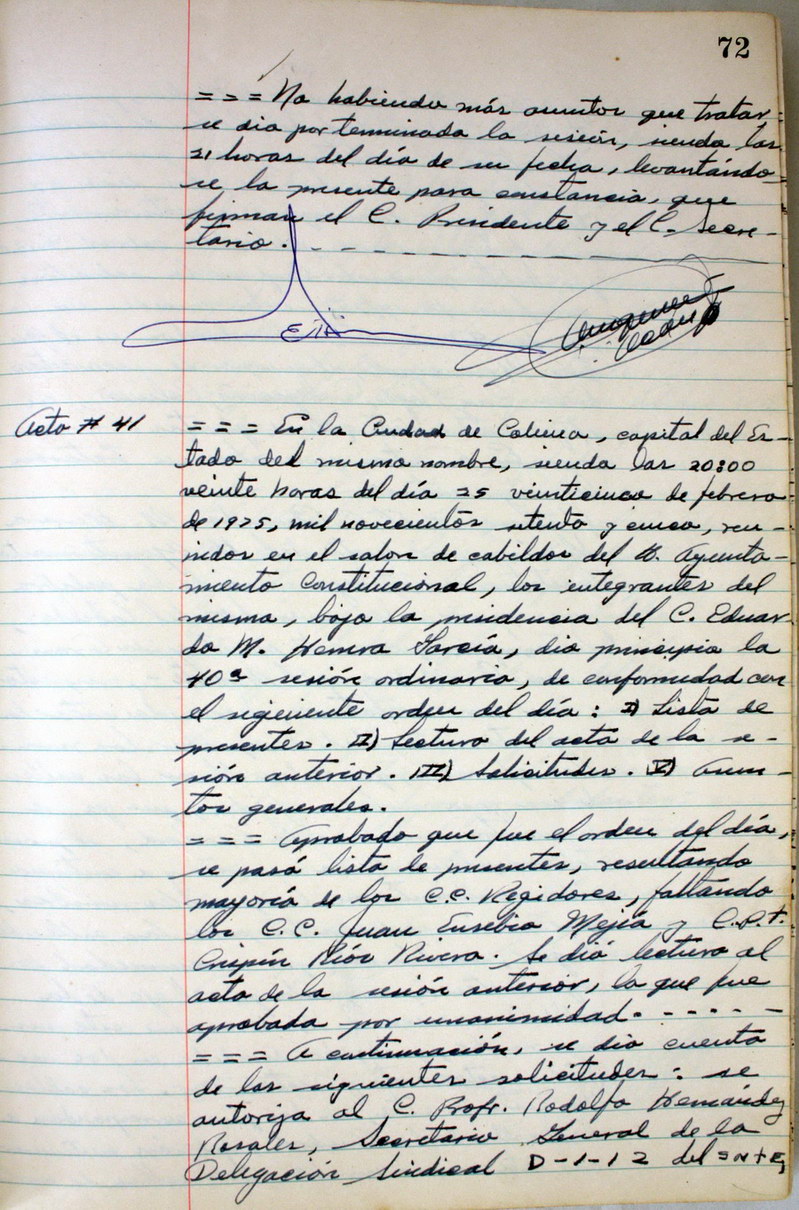 72
= = = No habiendo más asuntos que tratar,
se dio por terminada la sesión, siendo las
21 horas del día de su fecha, levantándo-
se la presente para constancia, que
firman el C. Presidente y el C. Secre-
tario. - - -
Acta # 41
= = = En la Ciudad de Colima, capital del Es-
tado del mismo nombre, siendo las 20:00
veinte horas del día 25 veinticinco de febrero
de 1975, mil novecientos setenta y cinco, reu-
nidos en el salon de cabildos del H. Ayunta-
miento Constitucional, los integrantes del
mismo, bajo la presidencia del C. Eduar-
do M. Herrera García, dio principio la
40a sesión ordinaria, de conformidad con
el siguiente orden del día: I) Lista de
presentes. II) Lectura del acta de la se-
sión anterior. III) Solicitudes. V) Asun-
tos generales.
= = = Aprobado que fue el orden del día,
se pasó lista de presentes, resultando
mayoría de los C.C. Regidores, faltando
los C.C. Juan Eusebio Mejía y C.P.t.
Crispín Ríos Rivera. Se dió lectura al
acta de la sesión anterior, la que fue
aprobada por unanimidad. - - - - -
= = = A continuación, se dio cuenta
de las siguientes solicitudes: se
autoriza al C. Profr. Rodolfo Hernández
Rosales, Secretario General de la
Delegación Sindical D-1-12 del SNTE,